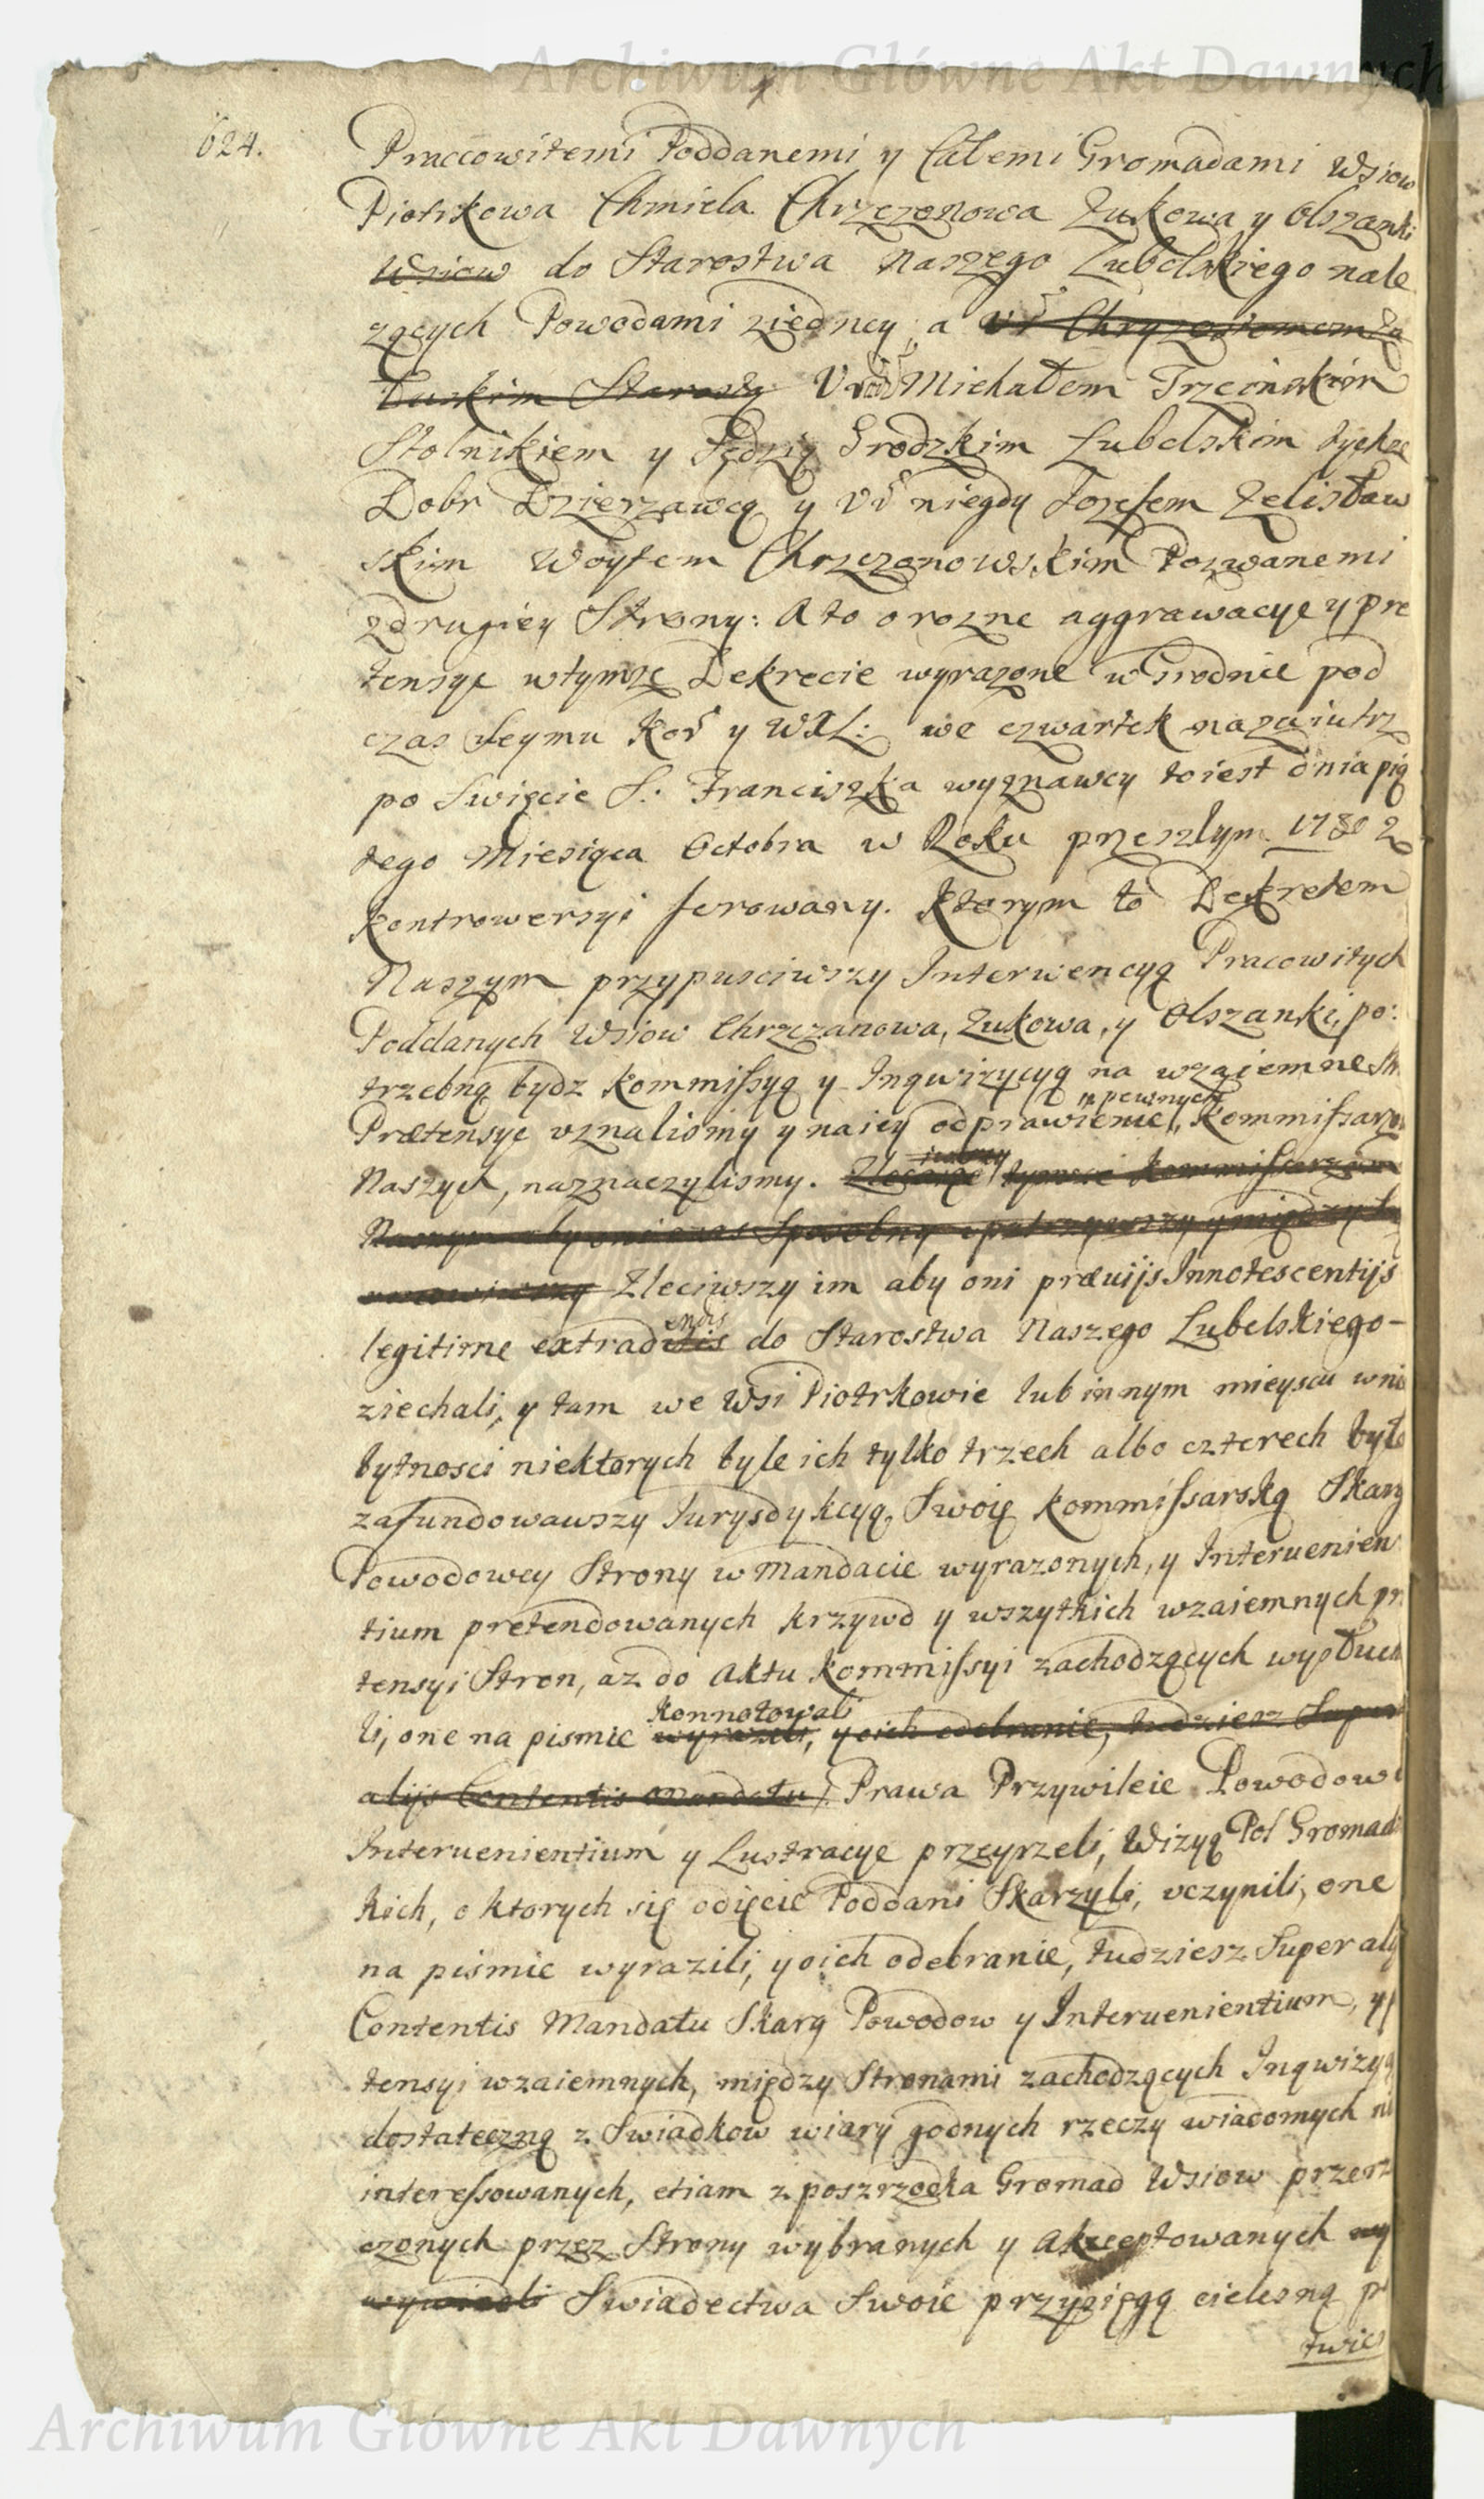 Archiwum Główne Akt Dawnych
624.
Praccowitemi Poddanemi y Całemi Gromadami Wsiow
Piotrkowa Chmiela Chrzczonowa Zukowa y Olszanki
Wsiow do Starostwa Naszego Lubelskiego nale
zących Powodami ziedney, a Ur Chryzostomem Za
łuskim Starostą Urod Michałem Trzcinskim
Stolnikiem y Sędzią Grodzkim Lubelskim tychze
Dobr Dzierzawcą y Ur niegdy Jozefem Zelisław
skim Woytem Chrzczonowskim Pozwanemi
zdrugiey Strony: A to o rozne aggrawacye y pre
tensye wtymze Dekrecie wyrazone w Grodnie pod
czas Seymu Kor y WXL: we czwartek nazaiutrz
po Swięcie S. Franciszka wyznawcy toiest dnia pią
tego Miesiąca Octobra w Roku przeszłym 1780 z
kontrowersyi ferowany. Ktorym to Dekretem
Naszym przypusciwszy Interwencyą Pracowitych
Poddanych Wsiow Chrzczanowa, Zukowa, y Olszanki, po:
trzebną bydz kommissyą y Inqwizycyą na wzaiemne
Prætensye uznalismy y na iey odprawienie, pewnych Kommissarzo
Naszych, naznaczylismy. Zlecaiąc tymze Kommissarzom
Naszym aby oni czas Sposobny upatrzywszy y między
Zleciwszy im aby oni præuijs Innotescentijs
legitime extraditis endis do Starostwa Naszego Lubelskiego-
ziechali, y tam we Wsi Piotrkowie lub innym mieyscu wnie
bytnosci niektorych byle ich tylko trzech albo czterech było
zafundowawszy Jurysdykcyą Swoię kommissarską Skarg
Powodowey Strony w Mandacie wyrazonych, y Interuenien
tium pretendowanych krzywd y wszytkich wzaiemnych pr
tensyi Stron, az do Aktu kommissyi zachodzących wysłuch
li, one na pismie wyrazili, konnotowali y oich odebranie, tudziesz Super
alijs Contentis Mandatu, Prawa Przywileie Powodow
Interuenientium y Lustracye przeyrzeli, Wizyą Pol Gromadz
kich, o ktorych się odięcie Poddani Skarzyli, uczynili, one
na pismie wyrazili, y oich odebranie, tudziesz Super alijs
Contentis Mandatu Skarg Powodow y Interuenientium, y p
tensyi wzaiemnych, między Stronami zachodzących Inqwizyą
dostateczną z Swiadkow wiary godnych rzeczy wiadomych ni
interessowanych, etiam z poszrzodka Gromad Wsiow przerz
czonych przez Strony wybranych y akceptowanych wy
wywiedli Swiadectwa Swoie przysięgą cielesną p
twier
Archiwum Główne Akt Dawnych